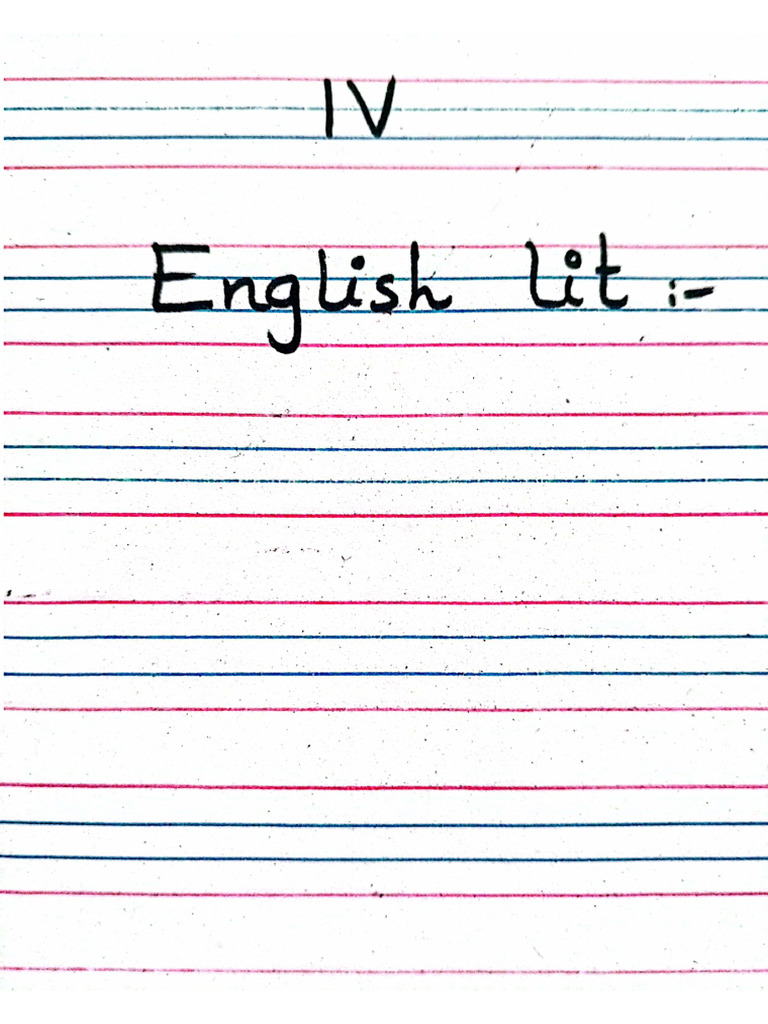 IV
English lit :-